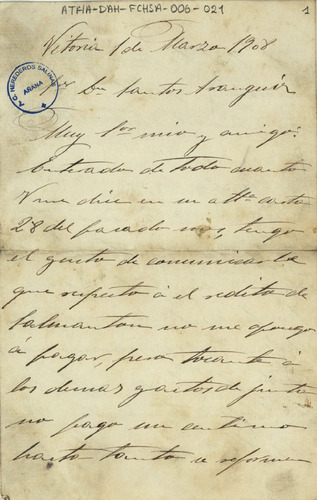 ATHA-DAH-FCHSA-006-021
1
Vitoria 1 de Marzo 1908
A.C. HEREDEROS SALINAS
AÑANA
Sr Dn Santos Aranguiz
Muy Sor mio y amigo:
Enterado de todo cuanto
V me dice en su atta carta
28 del pasado mes, tengo
el gusto de comunicarle
que respecto á el redito de
Salmanton no me opongo
á pagar, pero tocante á
los demas gastos de junta
no pago un centimo
hasta tanto se reforme